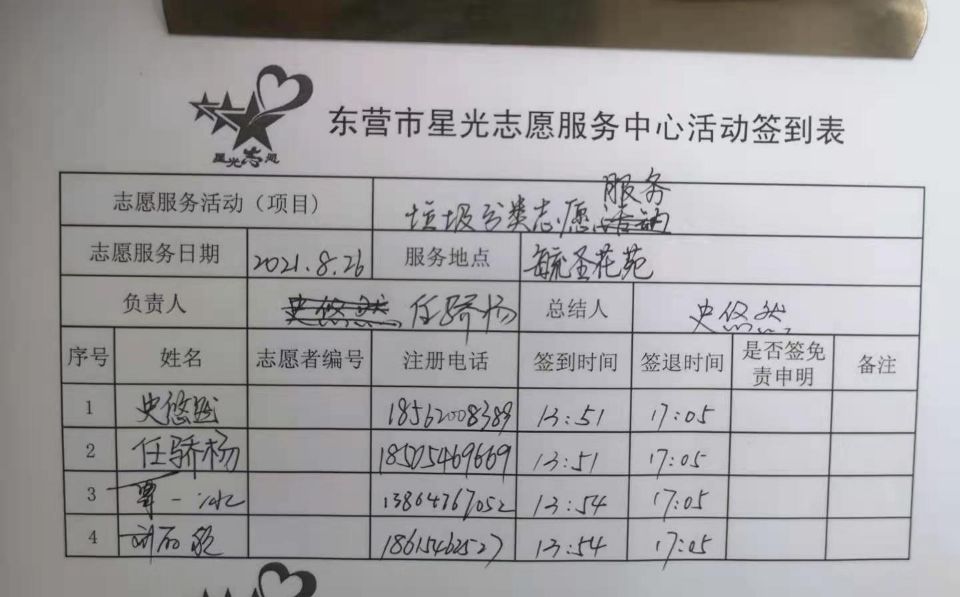 星光志愿
东营市星光志愿服务中心活动签到表
志愿服务活动（项目） 垃圾分类志愿服务
志愿服务日期 2021.8.26 服务地点 毓圣花苑
负责人 任骄杨 总结人 史悠然
序号 姓名 志愿者编号 注册电话 签到时间 签退时间 是否签免责申明 备注
1 史悠然 18562008389 13:51 17:05
2 任骄杨 18505469669 13:51 17:05
3 13864767052 13:54 17:05
4 18615462527 13:54 17:05